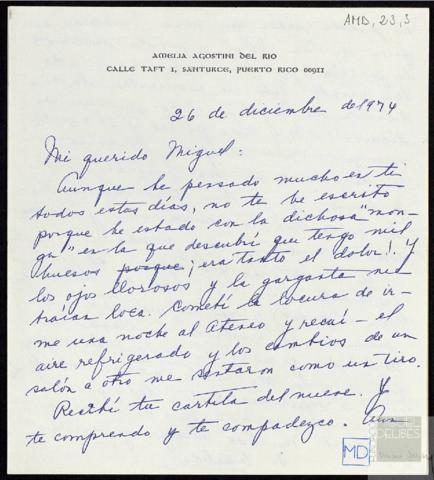 AMD, 23, 3
AMELIA AGOSTINI DEL RIO
CALLE TAFT 1, SANTURCE, PUERTO RICO 00911
26 de diciembre de 1974
Mi querido Miguel:
Aunque he pensado mucho en ti
todos estos días, no te he escrito
porque he estado con la dichosa "mon-
ga" en la que descubrí que tengo mil
huesos porque; ¡era tanto el dolor!. Y
los ojos llorosos y la garganta me
traían loca. Cometí la locura de ir-
me una noche al Ateneo y recaí - el
aire refrigerado y los cambios de un
salón a otro me sentaron como un tiro.
Recibí tu cartita del nueve. Y
te comprendo y te compadezco. Aun
MD
DELIBES